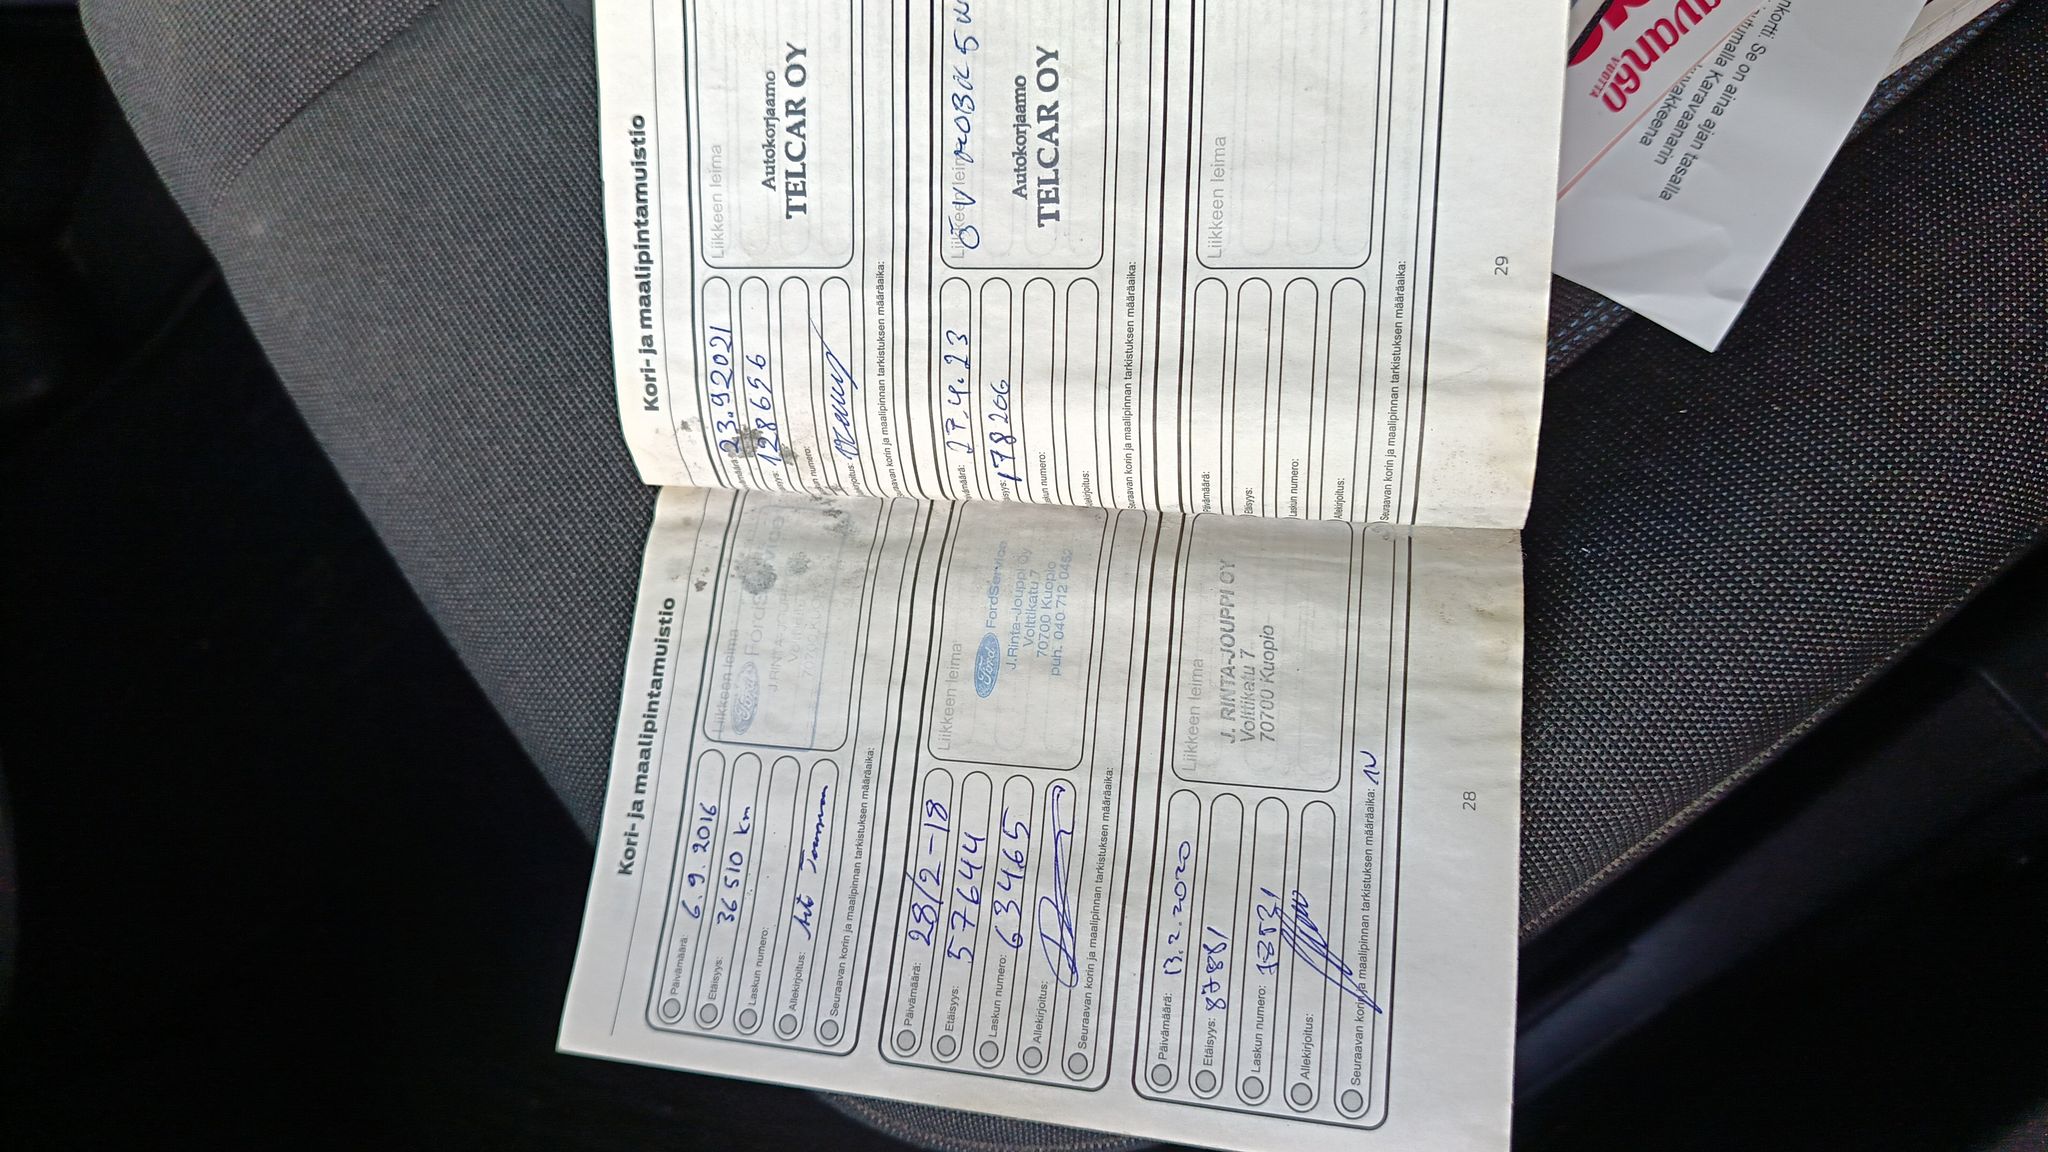 Kori- ja maalipintamuistio
Päivämäärä: 6.9.2016
Etäisyys: 36510 km
Laskun numero:
Allekirjoitus:
Seuraavan korin ja maalipinnan tarkistuksen määräaika:
Liikkeen leima
Ford FordService
J. RINTA-JOUPPI
Päivämäärä: 28/2-18
Etäisyys: 57644
Laskun numero: 63465
Allekirjoitus:
Seuraavan korin ja maalipinnan tarkistuksen määräaika:
Liikkeen leima
Ford FordService
J.Rinta-Jouppi Oy
Volttikatu 7
70700 Kuopio
puh. 040 712 0462
Päivämäärä: 13.2.2020
Etäisyys: 87881
Laskun numero:
Allekirjoitus:
Seuraavan korin ja maalipinnan tarkistuksen määräaika: 1V
Liikkeen leima
J. RINTA-JOUPPI OY
Volttikatu 7
70700 Kuopio
28
Kori- ja maalipintamuistio
23.9.2021
128656
numero:
Seuraavan korin ja maalipinnan tarkistuksen määräaika:
Liikkeen leima
Autokorjaamo
TELCAR OY
27.4.23
178266
numero:
Seuraavan korin ja maalipinnan tarkistuksen määräaika:
Liikkeen leima
Autokorjaamo
TELCAR OY
Päivämäärä:
Etäisyys:
Laskun numero:
Allekirjoitus:
Seuraavan korin ja maalipinnan tarkistuksen määräaika:
Liikkeen leima
29
VUOTTA
Se on aina ajan tasalla
Karavaanarin